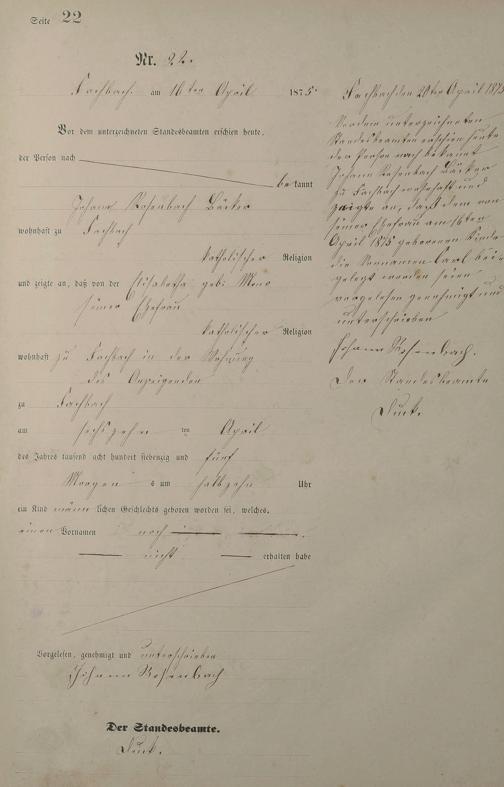 Seite 22
Nr. 22.
Fachbach am 16ten April 1875
Vor dem unterzeichneten Standesbeamten erschien heute,
der Person nach
bekannt
Johann Rosenbach Bäcker
wohnhaft zu Fachbach
katholischer Religion
und zeigte an, daß von der Elisabetha geb:
seiner Ehefrau
katholischer Religion
wohnhaft zu Fachbach in der Wohnung
des Anzeigenden
zu Fachbach
am sechszehn ten April
des Jahres tausend acht hundert siebenzig und fünf
Morgens um halbzehn Uhr
ein Kind männlichen Geschlechts geboren worden sei, welches,
einen Vornamen noch
nicht erhalten habe
Vorgelesen, genehmigt und unterschrieben
Johann Rosenbach
Der Standesbeamte.
Fachbach den 20ten April 1875
Vor dem unterzeichneten
Standesbeamten erschien heute
der Person nach bekannt
Johann Rosenbach Bäcker
zu Fachbach wohnhaft und
zeigte an, daß dem von
seiner Ehefrau am 16ten
April 1875 geborenen Kinde
die Vornamen Carl bei-
gelegt worden seien
vorgelesen genehmigt und
unterschrieben
Johann Rosenbach.
Der Standesbeamte